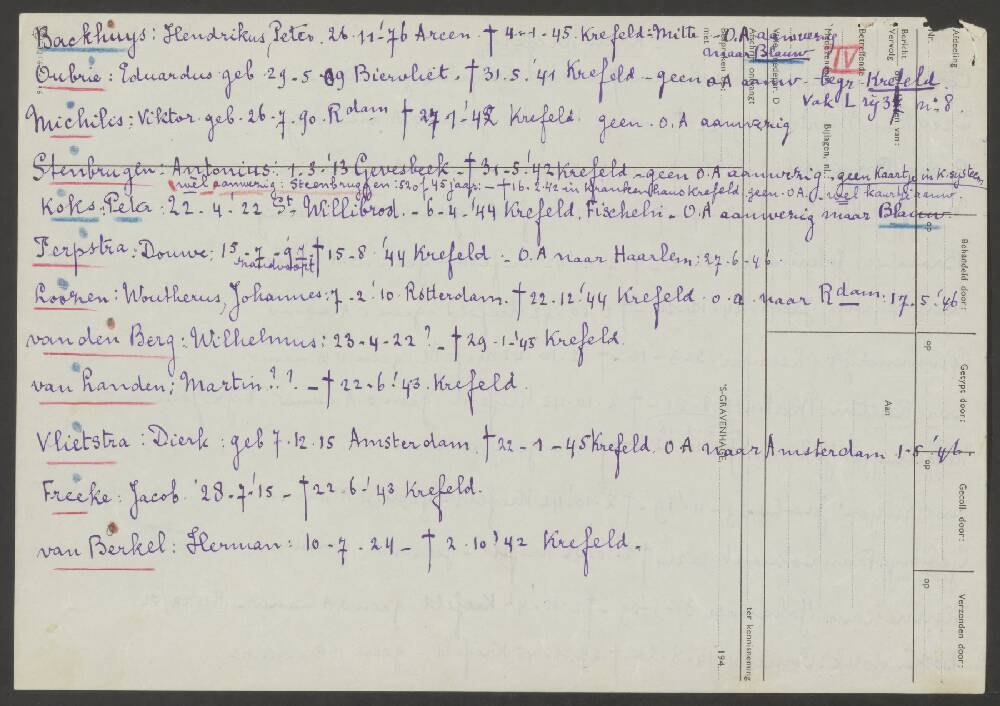 Backhuys: Hendrikus, Peter, 26-11-'76 Arcen. † 4-1-45. Krefeld-Mitte - O.A aanwezig
maar Blauw
Oubrie: Eduardus geb 29-5-09 Biervliet. † 31.5.'41 Krefeld - geen O.A aanw. - begr. Krefeld.
Vak L rij 37 no 8.
Michilis: Viktor geb. 26-7-90. Rdam † 27-1-42 Krefeld. geen O.A aanwezig
Stenbrugen: Antonius: 1.3.'13 Gevesbeek - † 31-5-'42 Krefeld - geen O.A aanwezig - geen Kaartje in K. systeem
wel aanwezig: Steenbruggen: 52 of 45 jaar: - † 16.2.42 in Krankenhaus Krefeld geen O.A. wel kaartje aanw.
Koks: Peter: 22.4.'22 St Willibrod. - 6-4.'44 Krefeld, Fischeln - O.A aanwezig maar Blauw
Terpstra: Douwe: 15-7-97 † 15-8 '44 Krefeld. - O.A naar Haarlem: 27-6-46.
Zandvoort
Loopen: Woutherus, Johannes: 7-2-'10. Rotterdam. † 22.12.'44 Krefeld. O.A. naar Rdam: 17.5.'46
van den Berg: Wilhelmus: 23-4-22? - † 29-1-'45 Krefeld.
van Landen: Martin ? ? - † 22-6.'43. Krefeld.
Vlietstra: Dierk: geb 7.12.15 Amsterdam, † 22-1-45 Krefeld. O.A naar Amsterdam 1-5.'46
Freeke: Jacob. '28-7-'15 - † 22.6-'43 Krefeld.
van Berkel: Herman: 10-7.24 - † 2.10.'42 Krefeld.
IV
Afdeeling
Nr.
Bericht
Vervolg
van:
Betreffende
Bijlagen,
D
met
'S-GRAVENHAGE,
194
ter kennisneming
Aan
Behandeld door:
op
Getypt door:
op
Gecoll. door:
op
Verzonden door:
op